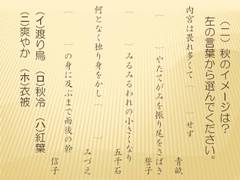 （二）秋のイメージは？
左の言葉から選んでください。
内宮は畏れ多くて｜　　｜せず
青畝
｜　　｜やたてがみを振り尾をさばき
誓子
｜　　｜みるみるわれの小さくなり
五千石
何となく独り身をかし｜　　｜
みづえ
｜　　｜の身に及ぶまで雨後の幹
信子
（イ）渡り鳥　（ロ）秋冷　（ハ）紅葉
（ニ）爽やか　（ホ）衣被